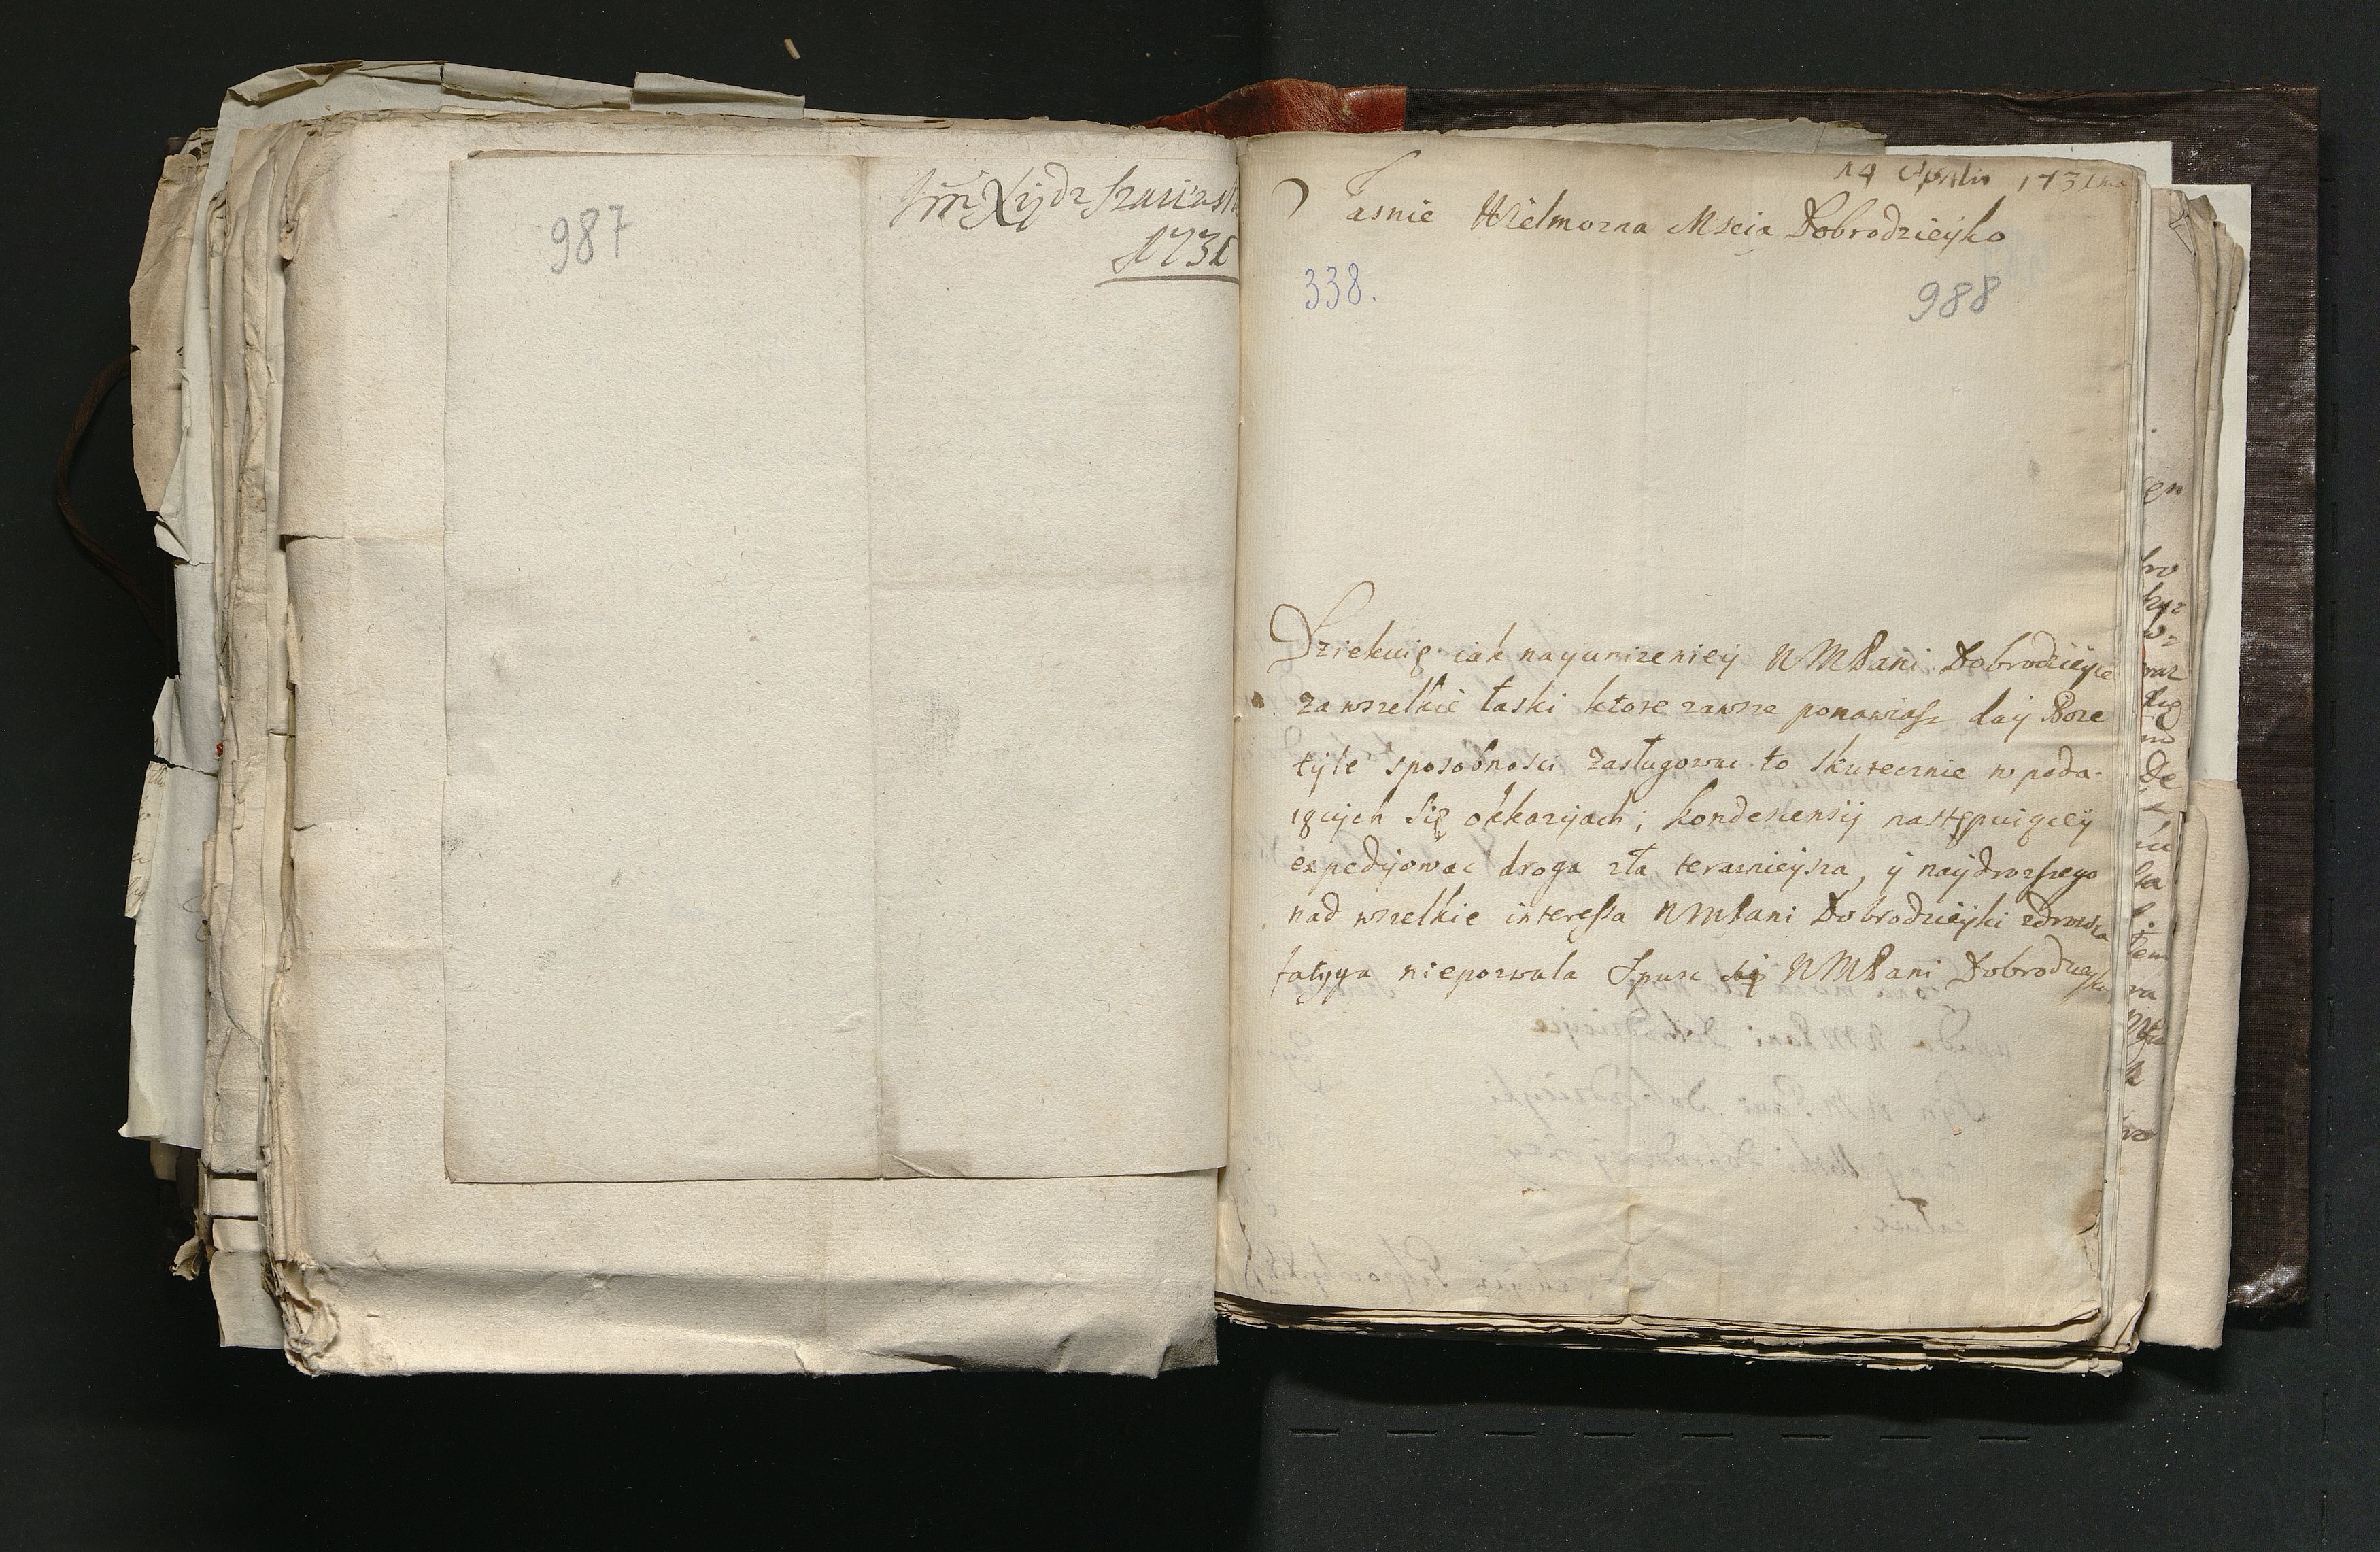 987
Jmć Xiądz
1731
14 Aprilis 1731
Jasnie Wielmozna Mscia Dobrodzieyko
338.
988
Dziekuię iak nayunizeniey WMPani Dobrodzieyce
za wszelkie łaski ktore zawsze ponawiasz day Boze
tyle sposobnosci zasługowac to skutecznie w poda-
iących się okkazyach; kondescensij następuiącey
expedyiowac droga zła teraznieysza, y naydrozszego
nad wszelkie interessa WMPani Dobrodzieyki zdrowia
fatyga niepozwala Spusc się WMPani Dobrodzieyko